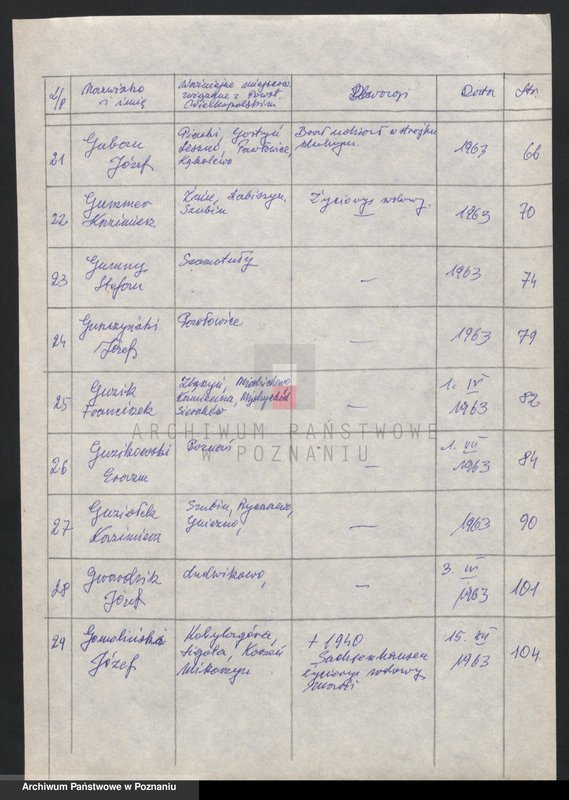 L/p Nazwisko i imię Ważniejsze miejscow. związane z Powst. Wielkopolskim Uwagi Data Str.
21 Guban Józef Piaski, Gostyń Leszno, Pawłowice, Kąkolewo Brał udział w strajku 1963 66
22 Gummer Kazimierz Żnin, Łabiszyn, Szubin Życiorys rodowy. — 1963 70
23 Gumny Stefan Szamotuły — 1963 74
24 Gurczyński Józef Pawłowice — 1963 79
25 Guzik Franciszek Zbąszyń, Miedzichowo Kamionna, Międzychód Sieraków — 1. IV 1963 82
26 Guzikowski Erazm Poznań — 1. VII 1963 84
27 Guziołek Kazimierz Szubin, Rynarzewo, Gniezno, — 1963 90
28 Gwardzik Józef Ludwikowo, — 3. IV 1963 101
29 Gomoliński Józef Kobylagóra, Ligota, Mikorzyn + 1940 Sachsenhausen życiorys rodowy 15. XII 1963 104.
ARCHIWUM PAŃSTWOWE
W POZNANIU
Archiwum Państwowe w Poznaniu